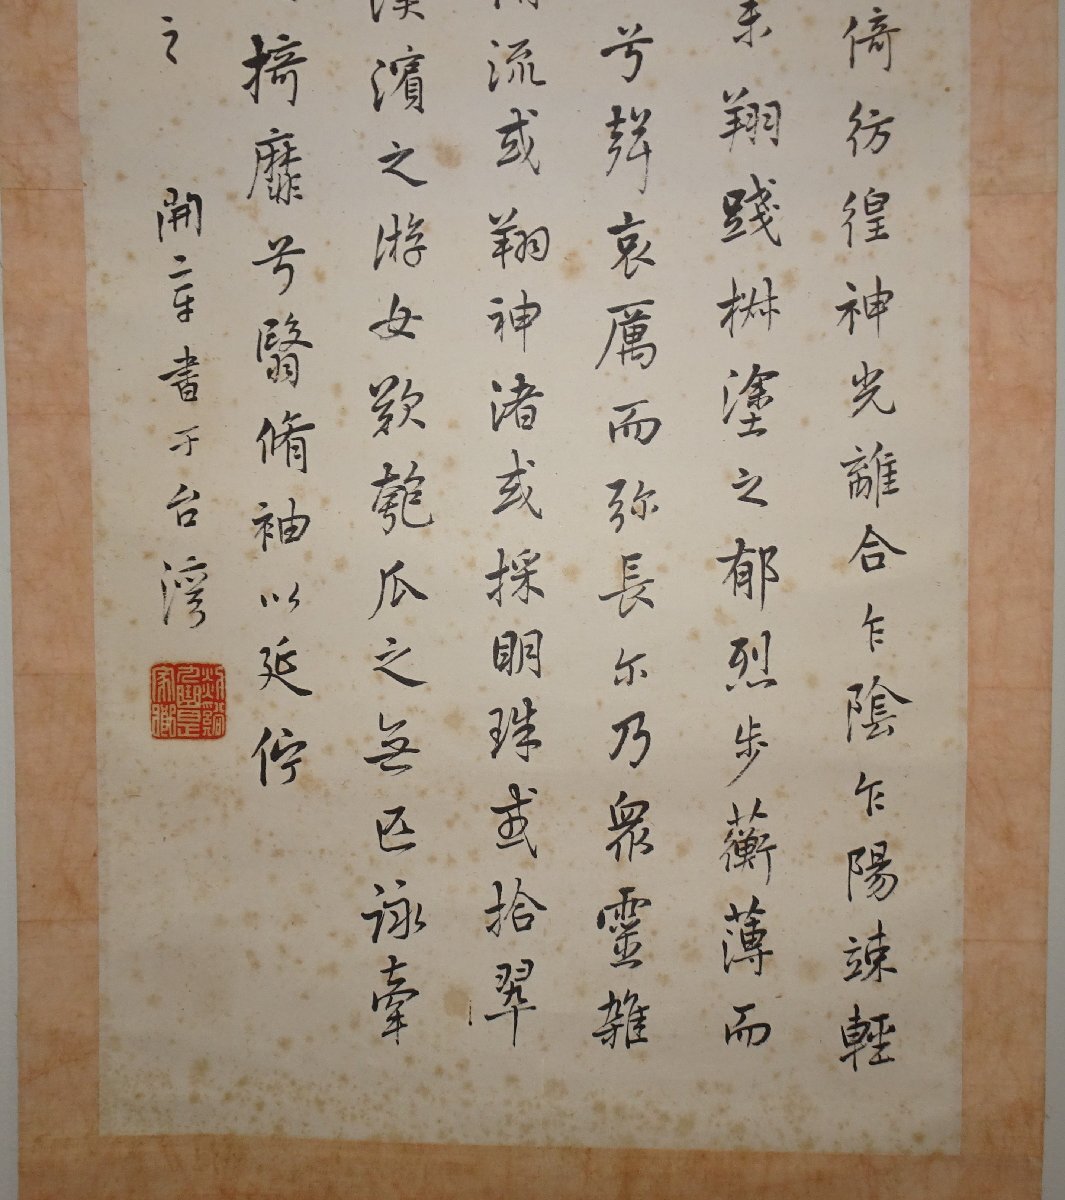 倚彷徨神光離合乍陰乍陽竦輕
未翔踐椒塗之郁烈步蘅薄而
兮聲哀厲而弥長尔乃眾靈雜
流或翔神渚或採明珠或拾翠
漢濱之游女歎匏瓜之無匹詠牽
掎靡兮翳脩袖以延佇
之 開 書于台湾